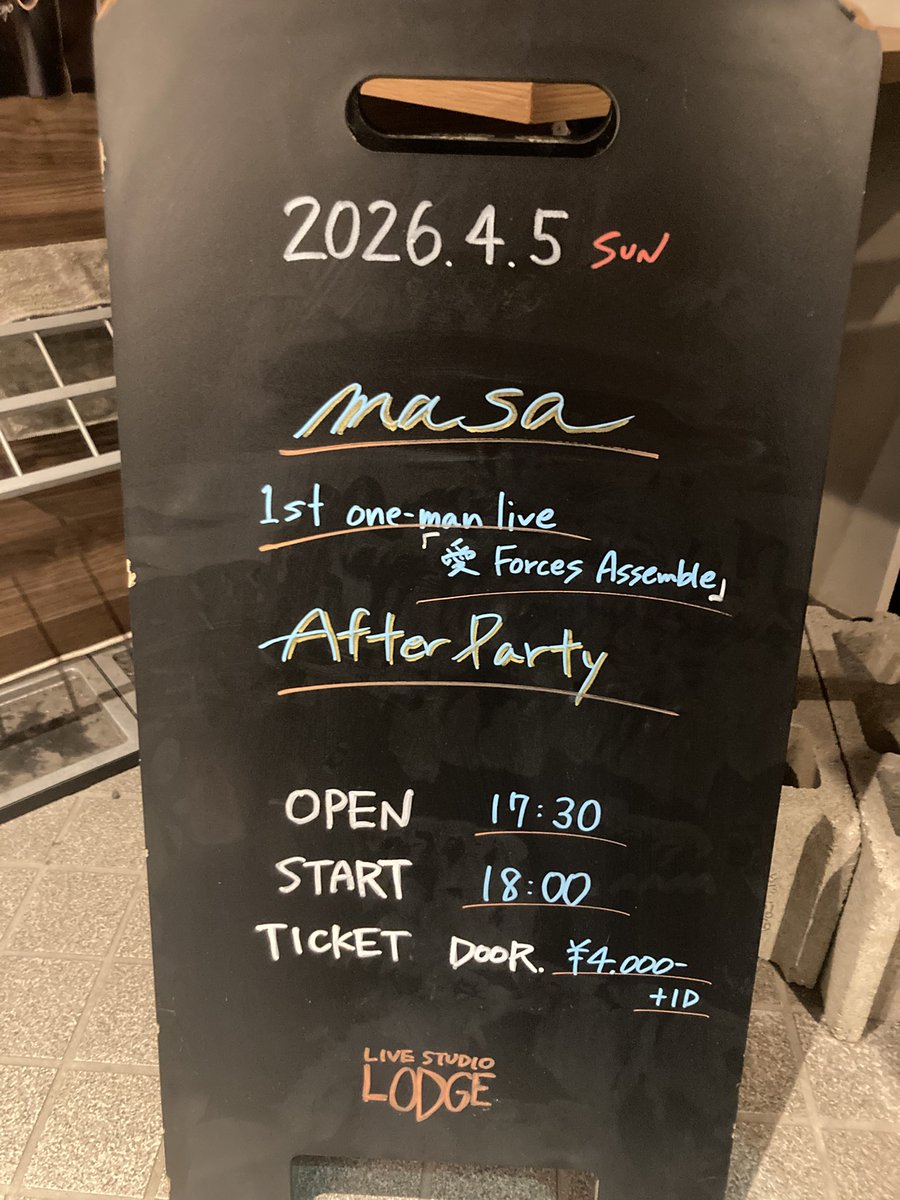 2026.4.5 SUN
masa
1st one-man live
「愛 Forces Assemble」
After Party
OPEN 17:30
START 18:00
TICKET DOOR. ¥4.000-
+1D
LIVE STUDIO
LODGE